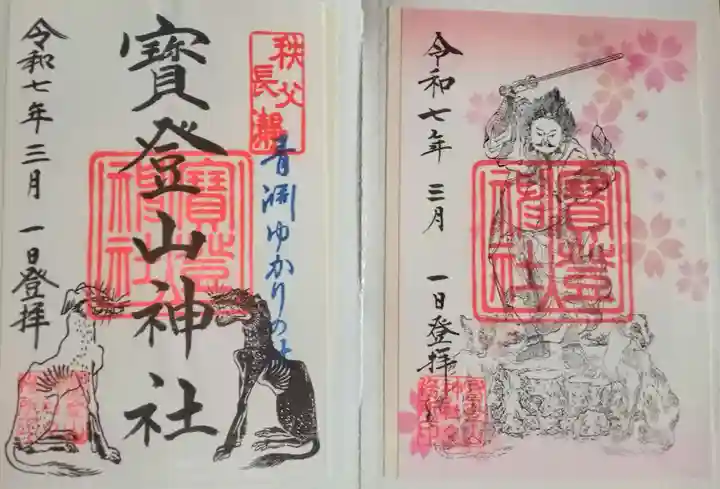 秩父
長瀞
青淵ゆかりの
寶登山神社
令和七年三月一日登拝
寶登
山
神社
令和七年三月一日登拝
寶登
山
神社